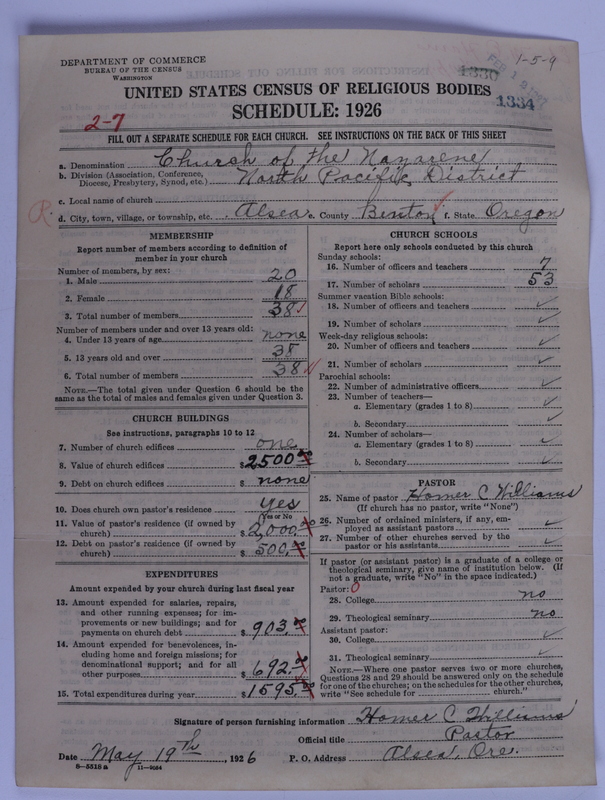 DEPARTMENT OF COMMERCE
BUREAU OF THE CENSUS
WASHINGTON
1-5-9
1330
FEB 1 9
1334
UNITED STATES CENSUS OF RELIGIOUS BODIES
SCHEDULE: 1926
2-7
FILL OUT A SEPARATE SCHEDULE FOR EACH CHURCH. SEE INSTRUCTIONS ON THE BACK OF THIS SHEET
a. Denomination Church of the Nazarene
b. Division (Association, Conference, Diocese, Presbytery, Synod, etc.) North Pacific District
c. Local name of church
R. d. City, town, village, or township, etc. Alsea e. County Binton f. State Oregon
MEMBERSHIP
Report number of members according to definition of
member in your church
Number of members, by sex:
1. Male 20
2. Female 18
3. Total number of members 38
Number of members under and over 13 years old:
4. Under 13 years of age none
5. 13 years old and over 38
6. Total number of members 38
NOTE.—The total given under Question 6 should be the
same as the total of males and females given under Question 3.
CHURCH BUILDINGS
See instructions, paragraphs 10 to 12
7. Number of church edifices one
8. Value of church edifices $2500.00
9. Debt on church edifices $ none
10. Does church own pastor's residence yes
(Yes or No)
11. Value of pastor's residence (if owned by
church) $2,000.00
12. Debt on pastor's residence (if owned by
church) $500.00
EXPENDITURES
Amount expended by your church during last fiscal year
13. Amount expended for salaries, repairs,
and other running expenses; for im-
provements or new buildings; and for
payments on church debt $903.00
14. Amount expended for benevolences, in-
cluding home and foreign missions; for
denominational support; and for all
other purposes $692.00
15. Total expenditures during year $1595.00
CHURCH SCHOOLS
Report here only schools conducted by this church
Sunday schools:
16. Number of officers and teachers 7
17. Number of scholars 53
Summer vacation Bible schools:
18. Number of officers and teachers ✓
19. Number of scholars ✓
Week-day religious schools:
20. Number of officers and teachers ✓
21. Number of scholars ✓
Parochial schools:
22. Number of administrative officers ✓
23. Number of teachers—
a. Elementary (grades 1 to 8) ✓
b. Secondary ✓
24. Number of scholars—
a. Elementary (grades 1 to 8) ✓
b. Secondary ✓
PASTOR
25. Name of pastor Homer C Williams
(If church has no pastor, write "None")
26. Number of ordained ministers, if any, em-
ployed as assistant pastors ✓
27. Number of other churches served by the
pastor or his assistants ✓
If pastor (or assistant pastor) is a graduate of a college or
theological seminary, give name of institution below. (If
not a graduate, write "No" in the space indicated.)
Pastor: 0
28. College no
29. Theological seminary no
Assistant pastor:
30. College ✓
31. Theological seminary ✓
NOTE.—Where one pastor serves two or more churches,
Questions 28 and 29 should be answered only on the schedule
for one of the churches; on the schedules for the other churches,
write "See schedule for church."
Signature of person furnishing information Homer C Williams
Official title Pastor
Date May 19th, 1926 P. O. Address Alsea, Ore.
8-5515 a 11-9264